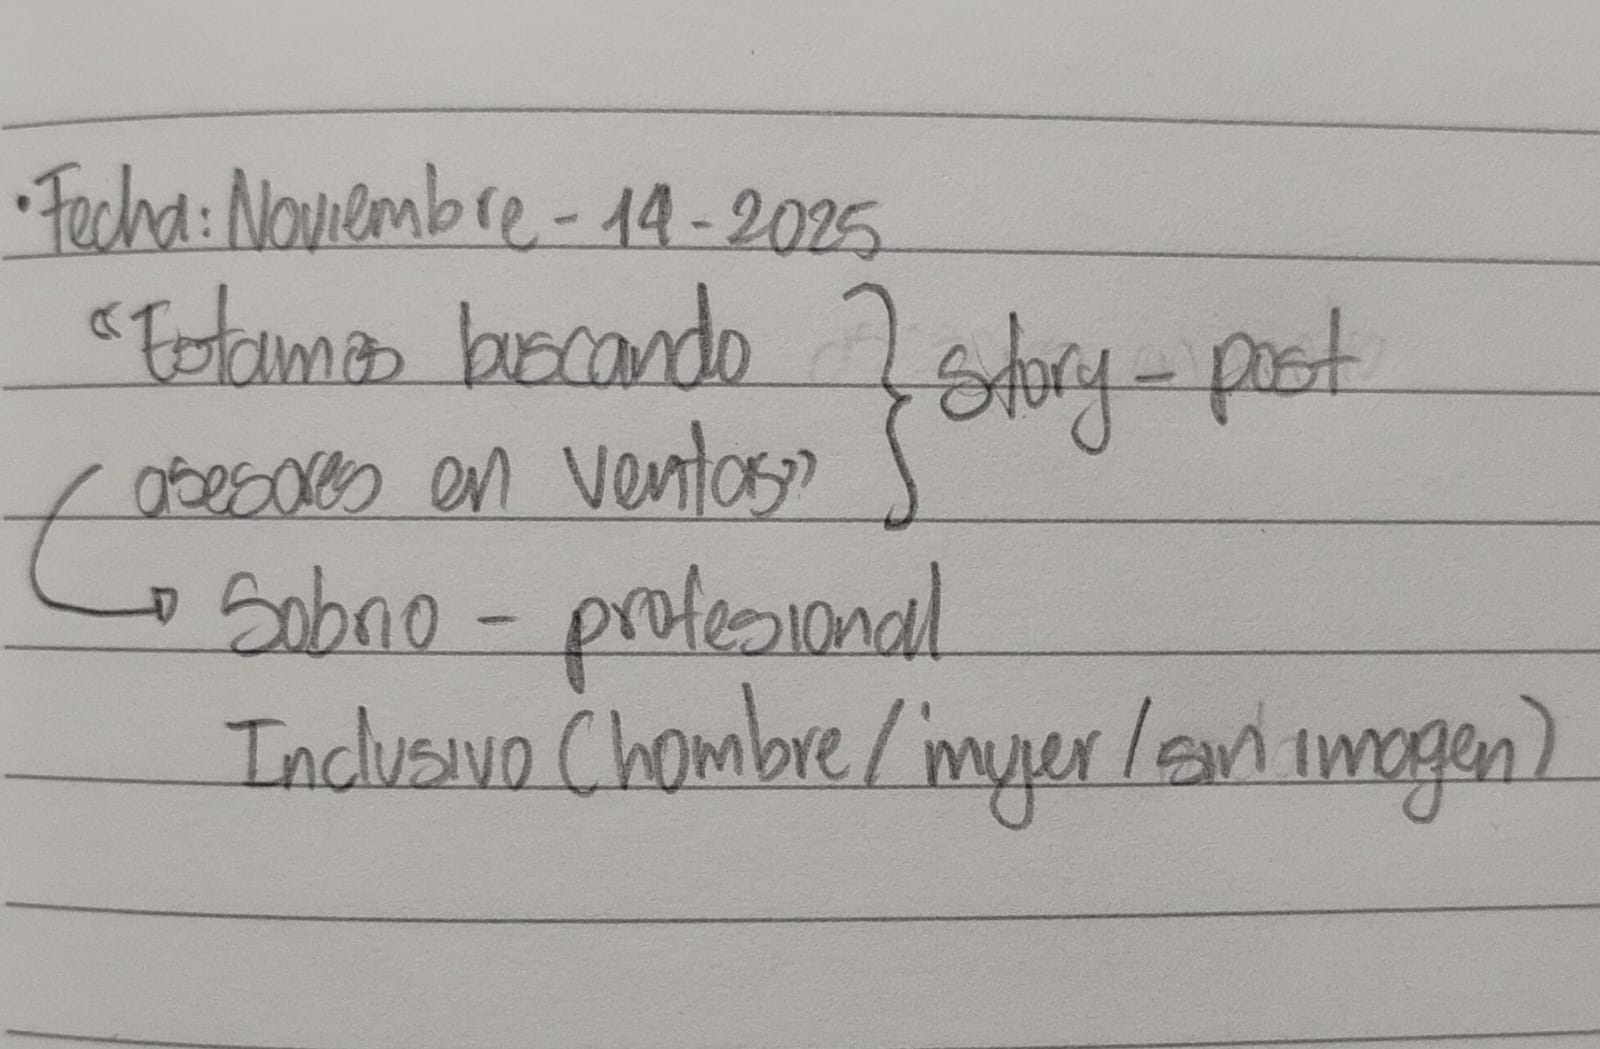 · Fecha: Noviembre - 14 - 2025
"Estamos buscando
asesores en ventas" } story - post
→ Sobrio - profesional
Inclusivo (hombre / mujer / sin imagen)